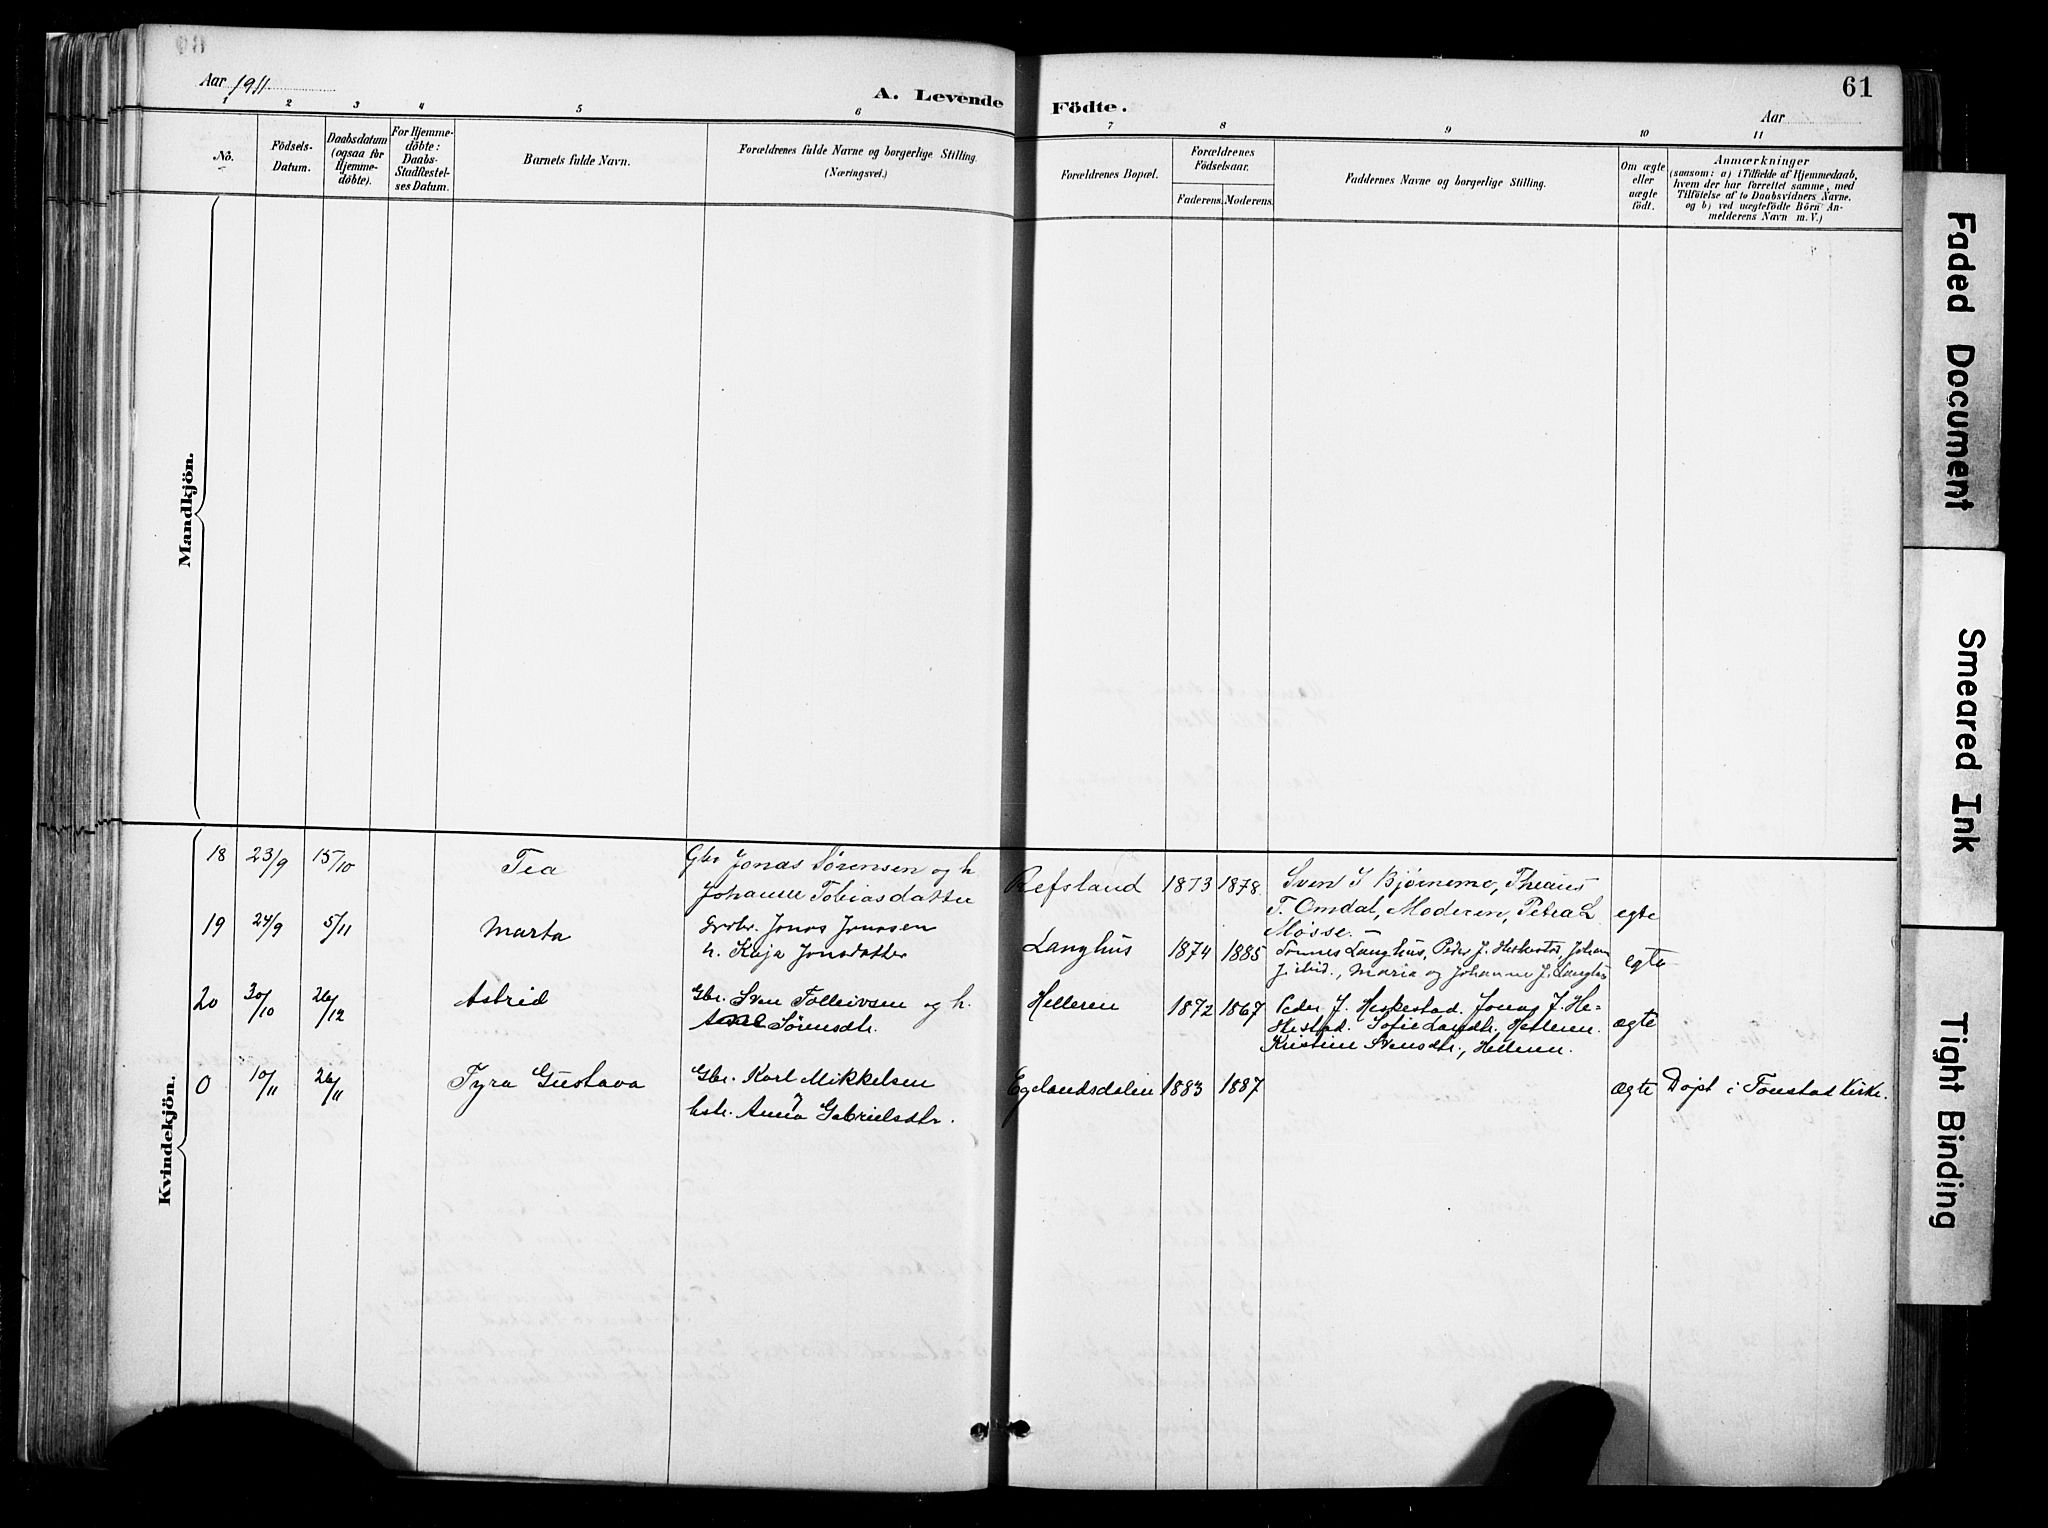 Aar 1911
A. Levende Födte.
61
Aar
1 2 3 4 5 6 7 8 9 10 11
No.
Födsels-
Datum.
Daabsdatum
(ogsaa for
Hjemme-
döbte).
For Hjemme-
döbte:
Daabs-
Stadfæstel-
ses Datum.
Barnets fulde Navn.
Forældrenes fulde Navne og borgerlige Stilling.
(Næringsvei.)
Forældrenes Bopæl.
Forældrenes
Födselsaar.
Faderens. Moderens.
Faddernes Navne og borgerlige Stilling.
Om ægte
eller
uægte
födt.
Anmærkninger
(saasom: a) i Tilfælde af Hjemmedaab,
hvem der har forrettet samme, med
Tilföielse af to Daabsvidners Navne,
og b) ved uægtefödte Börn An-
melderens Navn m. V.)
Mandkjön.
Kvindekjön.
18 23/9 15/10 Tea
Gbr Jonas Sörensen og h.
Johanne Tobiasdatter
Refsland 1873 1878
Sven I Bjørnemo, Theaus
T. Omdal, Moderen, Petra L
Mosse. –
egte
19 24/9 5/11 Marta
Grbr. Jonas Jonasen
h. Kaja Jonsdatter
Langhus 1874 1885
Tønnes Langhus, Peder J. Heskestad, Johan
J. ibid., Maria og Johanne J. Langhus
egte
20 30/10 26/12 Astrid
Gbr. Sven Tolleivsen og h.
Ane Sörensdtr.
Helleren 1872 1867
Peder J. Heskestad. Jonas J. He-
skestad. Sofie Larsdtr., Helleren.
Kristine Svensdtr., Helleren.
ægte
0 10/11 26/11 Tyra Gustava
Gbr. Karl Mikkelsen
hstr. Anna Gabrielsdtr.
Egelandsdalen 1883 1887
ægte
Døpt i Tonstad Kirke.
Faded Document
Smeared Ink
Tight Binding